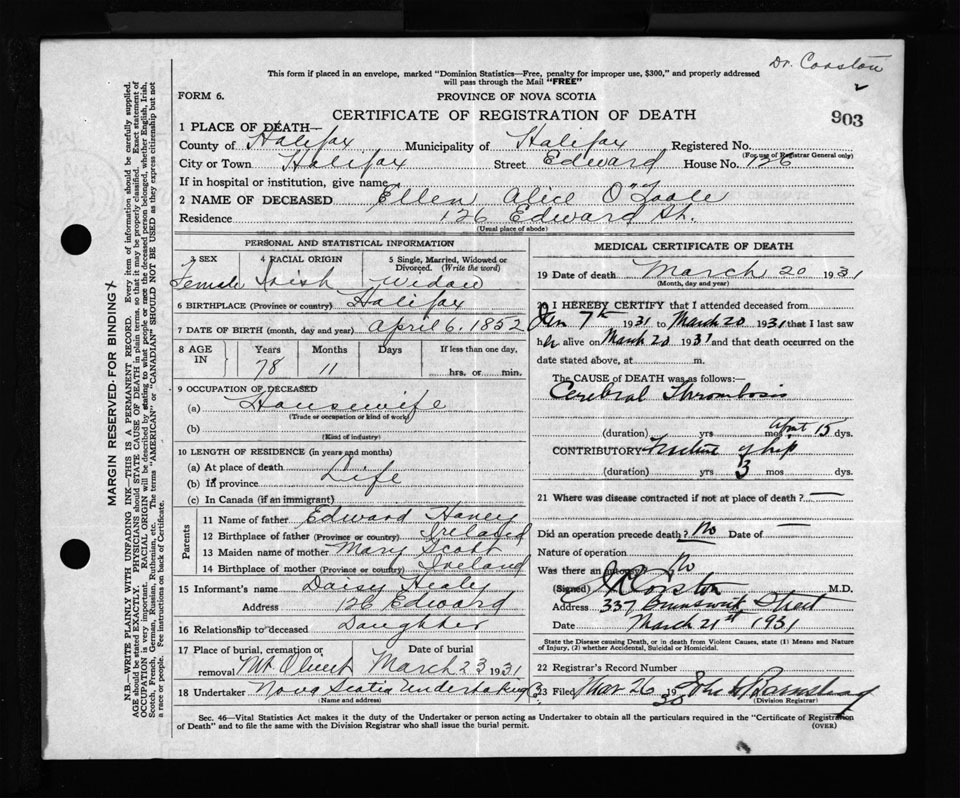 Dr. Corston
This form if placed in an envelope, marked "Dominion Statistics—Free, penalty for improper use, $300," and properly addressed
will pass through the Mail "FREE"
FORM 6.
PROVINCE OF NOVA SCOTIA
CERTIFICATE OF REGISTRATION OF DEATH
903
1 PLACE OF DEATH—
County of Halifax Municipality of Halifax Registered No.
(For use of Registrar General only)
City or Town Halifax Street Edward House No. 126
If in hospital or institution, give name
2 NAME OF DECEASED Ellen Alice O'Toole
Residence 126 Edward St.
(Usual place of abode)
PERSONAL AND STATISTICAL INFORMATION
3 SEX 4 RACIAL ORIGIN 5 Single, Married, Widowed or Divorced. (Write the word)
Female Irish Widow
6 BIRTHPLACE (Province or country) Halifax
7 DATE OF BIRTH (month, day and year) April 6, 1852
8 AGE IN Years Months Days If less than one day,
78 11 hrs. or min.
9 OCCUPATION OF DECEASED
(a) Housewife
(Trade or occupation or kind of work)
(b)
(Kind of industry)
10 LENGTH OF RESIDENCE (in years and months)
(a) At place of death
(b) If province Life
(c) In Canada (if an immigrant)
Parents
11 Name of father Edward Haney
12 Birthplace of father (Province or country) Ireland
13 Maiden name of mother Mary Scott
14 Birthplace of mother (Province or country) Ireland
15 Informant's name Daisy Healy
Address 126 Edward
16 Relationship to deceased Daughter
17 Place of burial, cremation or removal Mt. Olivet Date of burial March 23 1931
18 Undertaker Nova Scotia Undertaking Co.
(Name and address)
MEDICAL CERTIFICATE OF DEATH
19 Date of death March 20 1931
(Month, day and year)
20 I HEREBY CERTIFY that I attended deceased from
Jan 7th 1931 to March 20 1931 that I last saw
her alive on March 20 1931 and that death occurred on the
date stated above, at m.
The CAUSE OF DEATH was as follows:—
Cerebral Thrombosis
(duration) yrs mos April 15 dys.
CONTRIBUTORY Fracture of hip
(duration) yrs 3 mos dys.
21 Where was disease contracted if not at place of death? —
Did an operation precede death? No Date of —
Nature of operation —
Was there an autopsy? No
(Signed) Corston M.D.
Address 337 Brunswick Street
Date March 21st 1931
State the Disease causing Death, or in death from Violent Causes, state (1) Means and Nature
of Injury, (2) whether Accidental, Suicidal or Homicidal.
22 Registrar's Record Number
23 Filed Mar 26 1930 John
(Division Registrar)
Sec. 46—Vital Statistics Act makes it the duty of the Undertaker or person acting as Undertaker to obtain all the particulars required in the "Certificate of Registration
of Death" and to file the same with the Division Registrar who shall issue the burial permit.
(OVER)
MARGIN RESERVED FOR BINDING
N.B.—WRITE PLAINLY WITH UNFADING INK—THIS IS A PERMANENT RECORD. Every item of information should be carefully supplied.
AGE should be stated EXACTLY. PHYSICIANS should STATE CAUSE OF DEATH in plain terms, so that it may be properly classified. Exact statement of
OCCUPATION is very important. RACIAL ORIGIN will be described by stating to what people or race the deceased person belonged, whether English, Irish,
Scotch, French, German, Russian, Ruthenian, etc. The terms "AMERICAN" or "CANADIAN" SHOULD NOT BE USED as they express citizenship but not
a race or people. Fee instructions on back of Certificate.